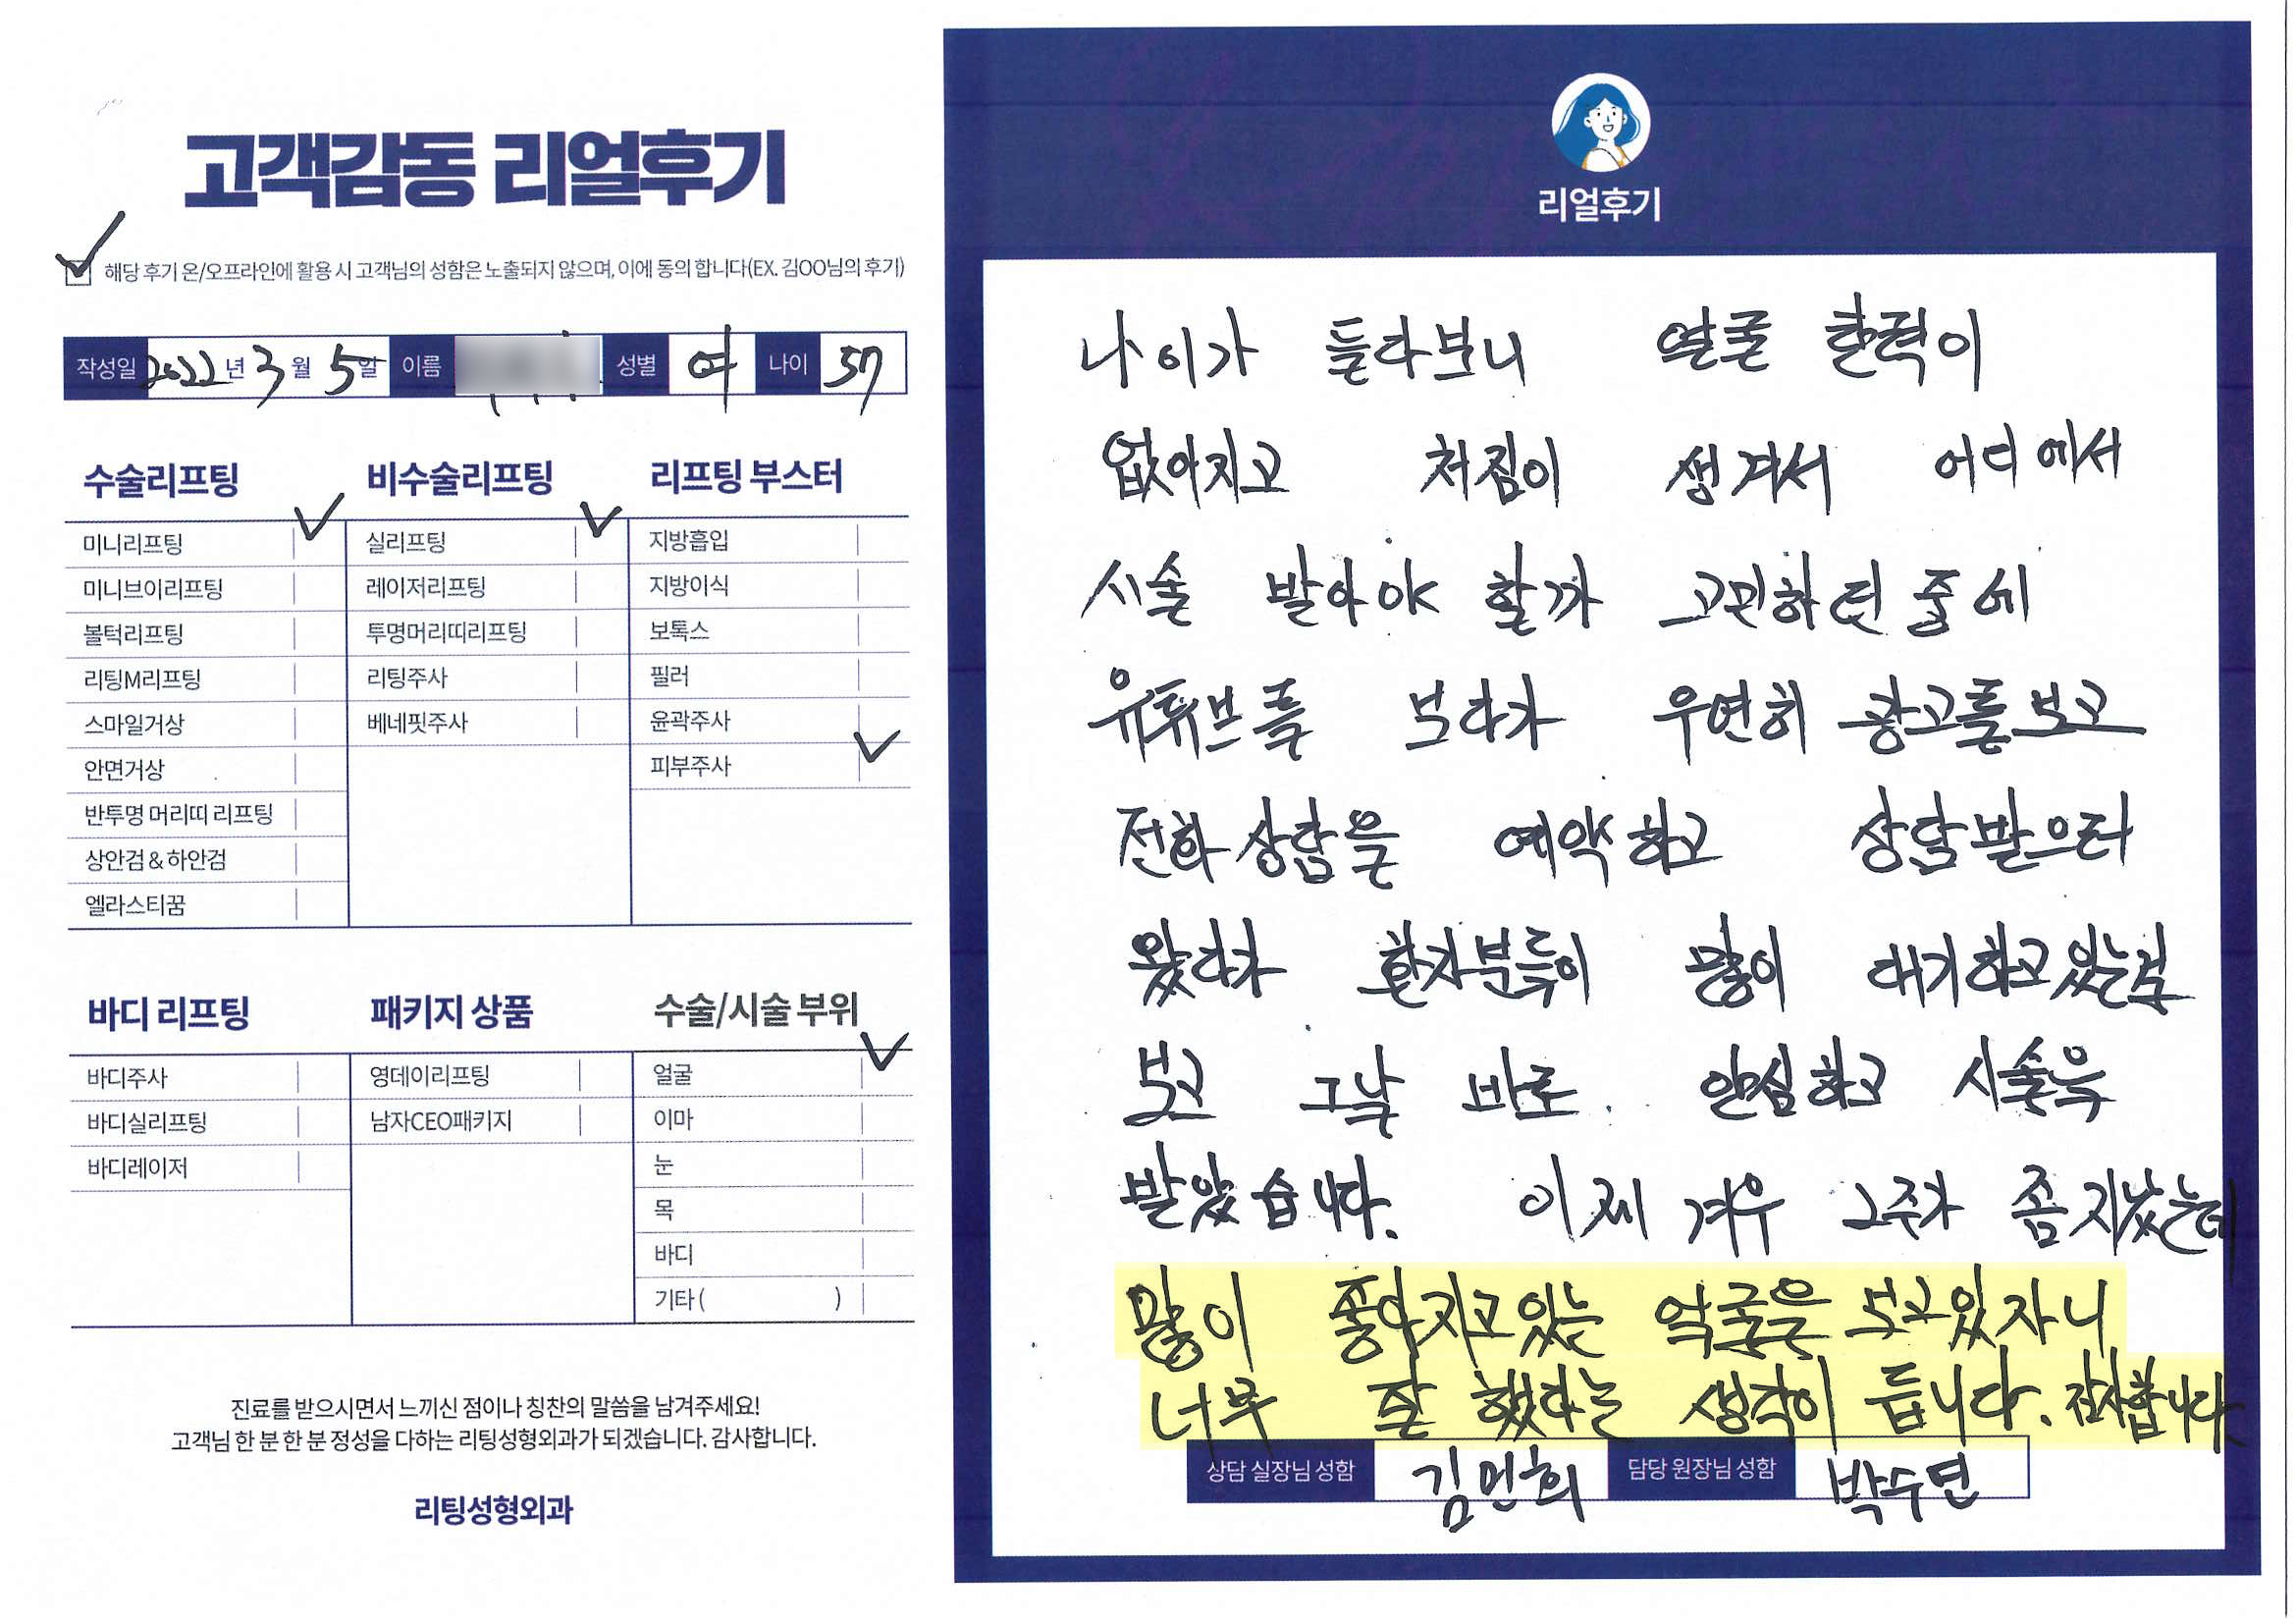 고객감동 리얼후기
해당 후기 온/오프라인에 활용 시 고객님의 성함은 노출되지 않으며, 이에 동의 합니다(EX. 김OO님의 후기)
작성일 2022년 3월 5일 이름 성별 여 나이 57
수술리프팅
미니리프팅
미니브이리프팅
볼턱리프팅
리팅M리프팅
스마일거상
안면거상
반투명 머리띠 리프팅
상안검 & 하안검
엘라스티꿈
비수술리프팅
실리프팅
레이저리프팅
투명머리띠리프팅
리팅주사
베네핏주사
리프팅 부스터
지방흡입
지방이식
보톡스
필러
윤곽주사
피부주사
바디 리프팅
바디주사
바디실리프팅
바디레이저
패키지 상품
영데이리프팅
남자CEO패키지
수술/시술 부위
얼굴
이마
눈
목
바디
기타 ( )
진료를 받으시면서 느끼신 점이나 칭찬의 말씀을 남겨주세요!
고객님 한 분 한 분 정성을 다하는 리팅성형외과가 되겠습니다. 감사합니다.
리팅성형외과
리얼후기
나이가 들다보니 얼굴 탄력이
없어지고 처짐이 생겨서 어디에서
시술 받아야 할까 고민하던 중에
유튜브를 보다가 우연히 광고를 보고
전화상담을 예약하고 상담받으러
왔다가 환자분들이 많이 대기하고 있는걸
보고 그날 바로 안심하고 시술을
받았습니다. 이제 겨우 2주가 좀 지났는데
많이 좋아지고있는 얼굴을 보고있자니
너무 잘 했다는 생각이 듭니다. 감사합니다.
상담 실장님 성함 김민희 담당 원장님 성함 박수연